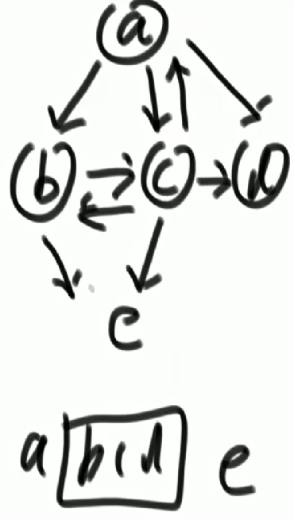 a
b c d
e
a bcd e